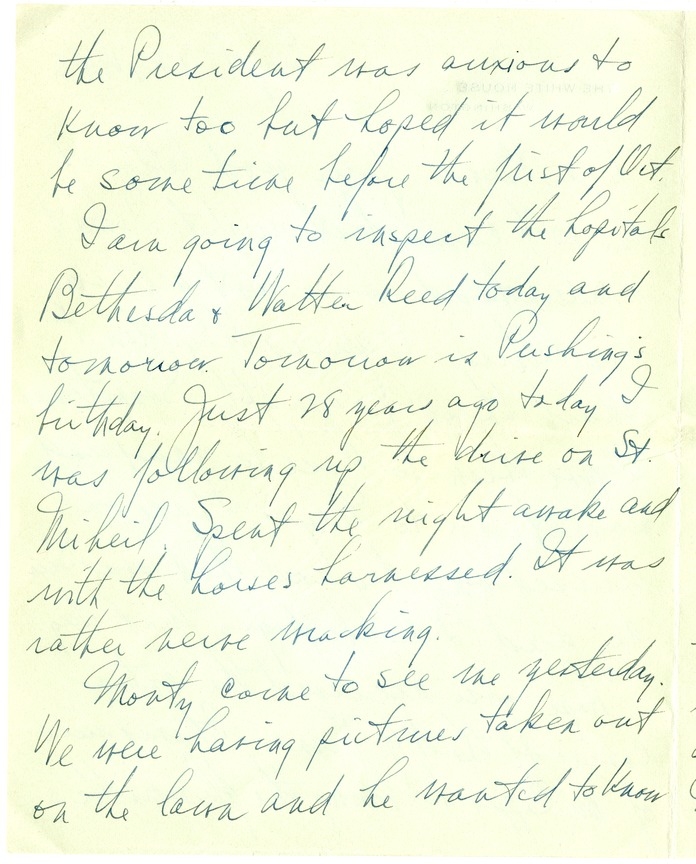 the President was anxious to
know too but hoped it would
be some time before the first of Oct.
I am going to inspect the hospitals
Bethesda & Walter Reed today and
tomorrow. Tomorrow is Pershing's
birthday. Just 28 years ago today I
was following up the drive on St.
Miheil. Spent the night awake and
with the horses harnessed. It was
rather nerve wracking.
Monty came to see me yesterday.
We were having pictures taken out
on the lawn and he wanted to know